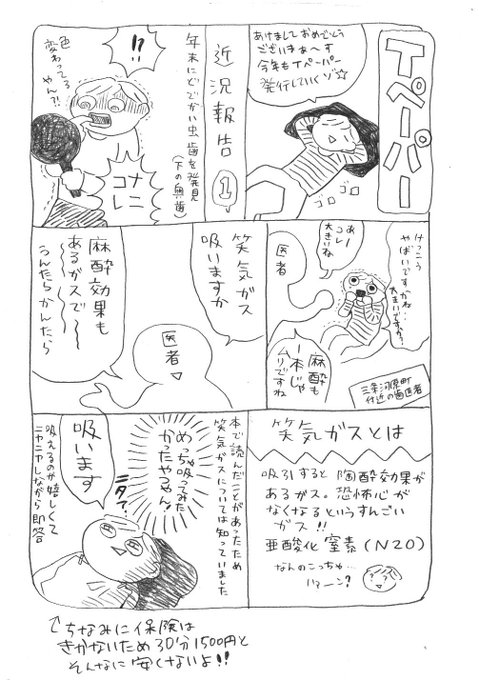 Tペーパー
あけましておめでとう
ございまぁーす
今年もTペーパー
発行していくゾ☆
ゴロ
ゴロ
近況報告①
年末にどでかい虫歯を発見
(下の奥歯)
!?
色
変わってる
やん?!
ナニ
コレ
けっこう
やばいですかね
大きいですか?…
あー
コレ
大きいね
医者
麻酔も
一本じゃ
ムリですね
三条河原町
付近の歯医者
笑気ガス
吸いますか
医者
麻酔効果も
あるガスで〜
〜〜〜〜
うんたらかんたら
笑気ガスとは
吸引すると陶酔効果が
あるガス。恐怖心が
なくなるというすんごい
ガス!!
亜酸化窒素(N2O)
なんのこっちゃ…
本で読んだことがあったため
笑気ガスについては知っていました
めっちゃ吸ってみた
かったやつやん!
ニタァ…
吸います
吸えるのが嬉しくて
ニヤニヤしながら即答
↑ちなみに保険は
きかないため30分1500円と
そんなに安くないよ!!